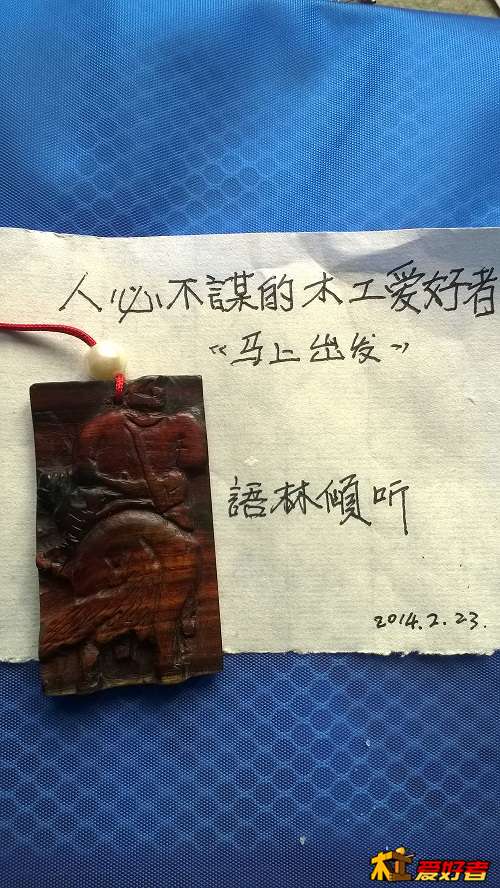 人必不謀的木工爱好者
“马上出发”
語林傾听
2014.2.23.
木工爱好者